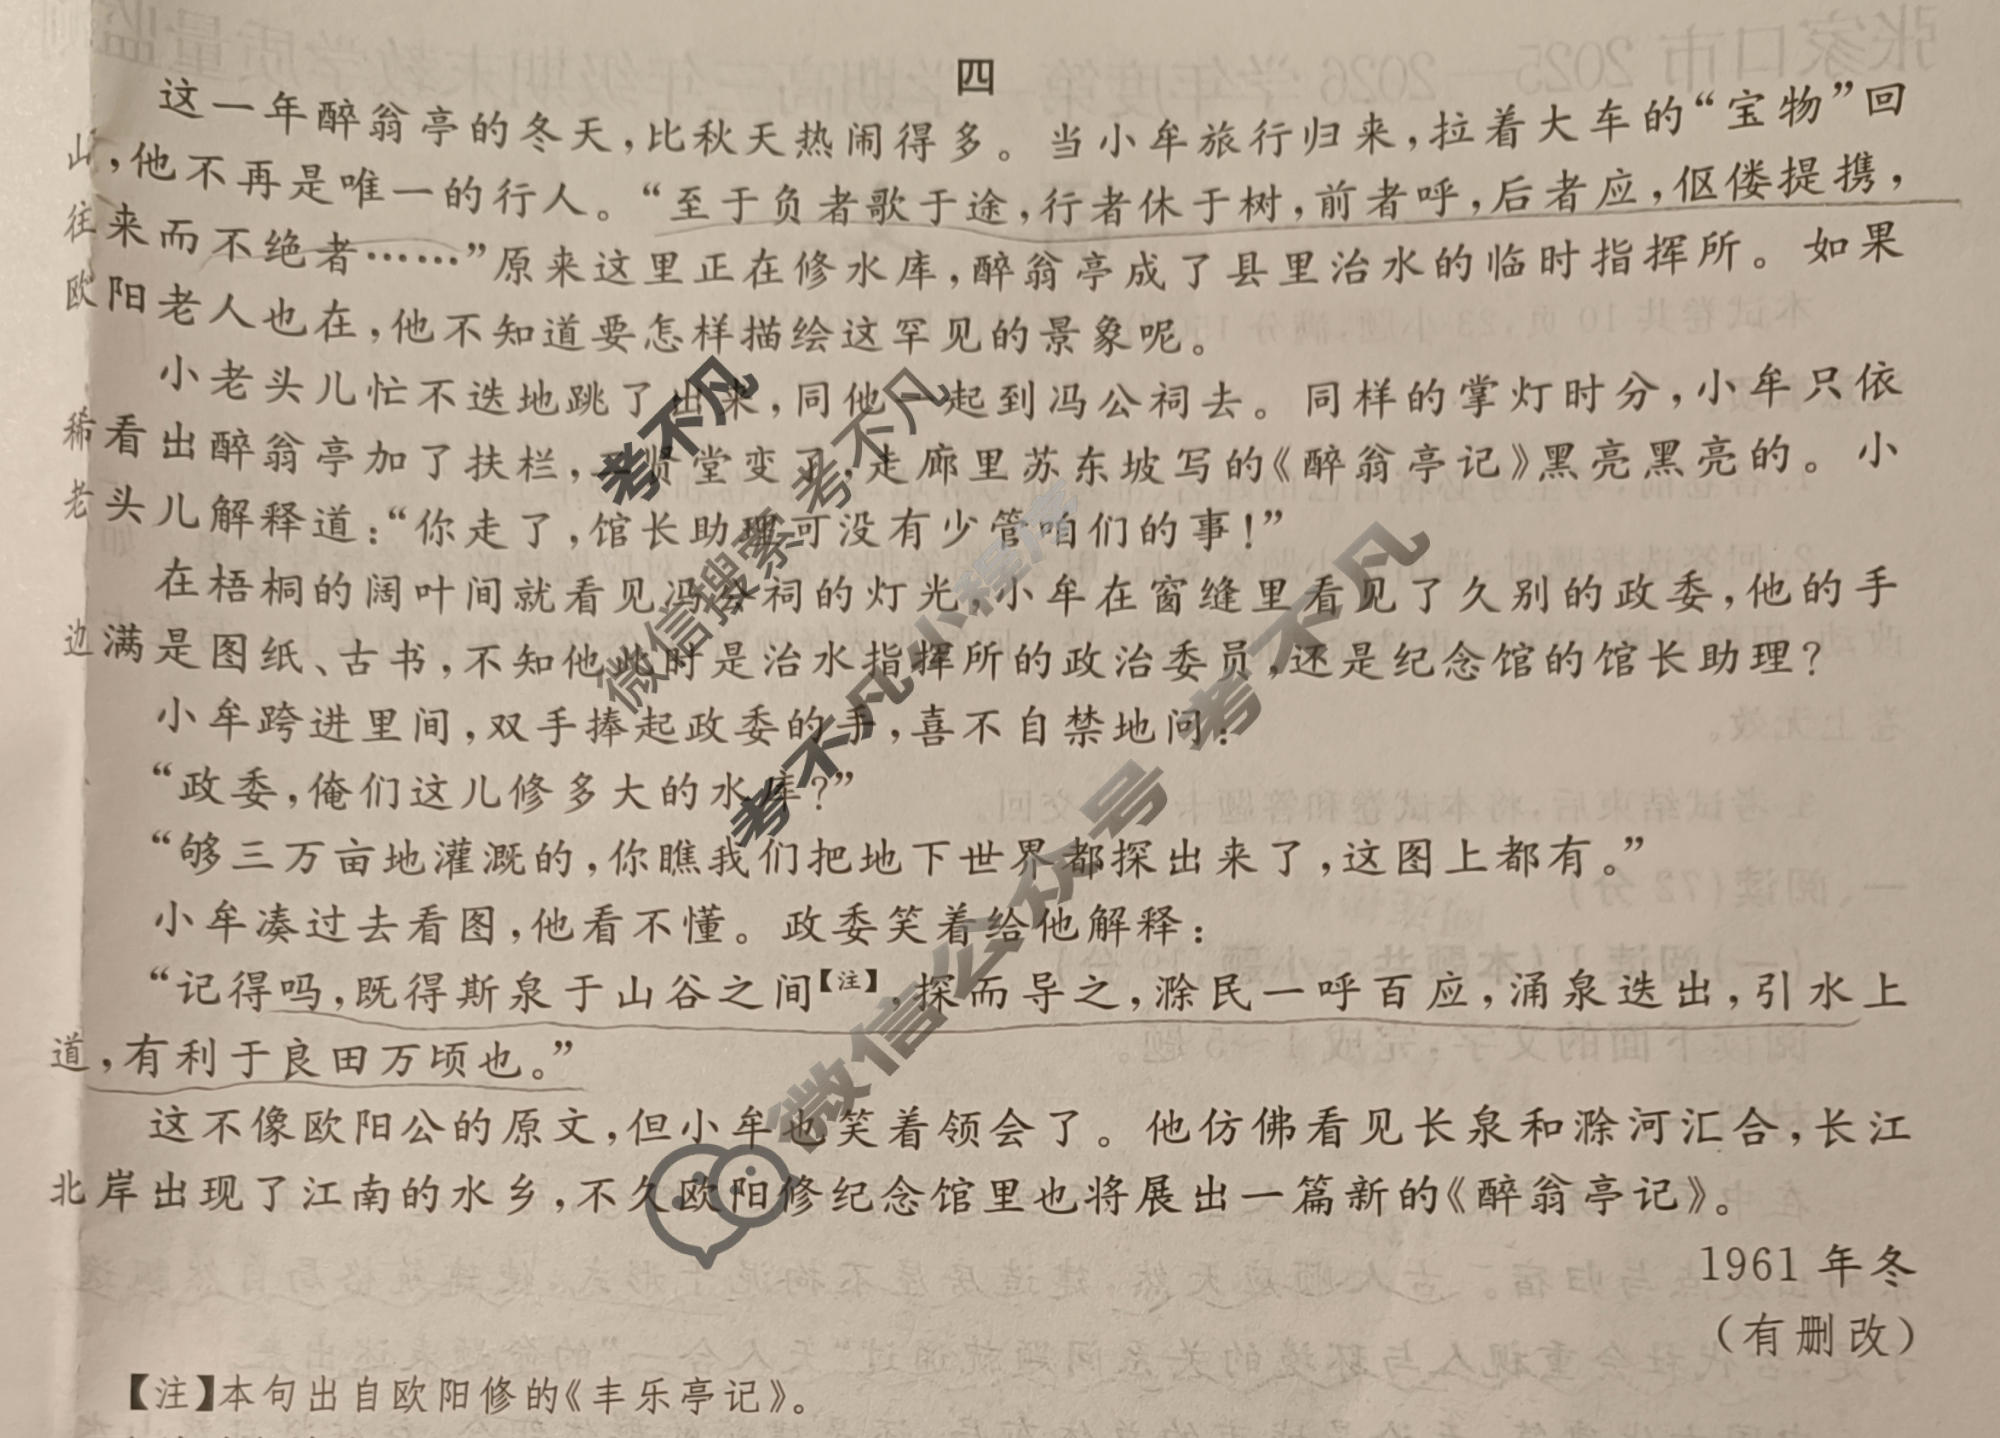 四
这一年醉翁亭的冬天，比秋天热闹得多。当小牟旅行归来，拉着大车的“宝物”回
山，他不再是唯一的行人。“至于负者歌于途，行者休于树，前者呼，后者应，伛偻提携，
往来而不绝者……”原来这里正在修水库，醉翁亭成了县里治水的临时指挥所。如果
欧阳老人也在，他不知道要怎样描绘这罕见的景象呢。
小老头儿忙不迭地跳了出来，同他一起到冯公祠去。同样的掌灯时分，小牟只依
稀看出醉翁亭加了扶栏，二贤堂变了，走廊里苏东坡写的《醉翁亭记》黑亮黑亮的。小
老头儿解释道：“你走了，馆长助理可没有少管咱们的事！”
在梧桐的阔叶间就看见冯公祠的灯光，小牟在窗缝里看见了久别的政委，他的手
边满是图纸、古书，不知他此时是治水指挥所的政治委员，还是纪念馆的馆长助理？
小牟跨进里间，双手捧起政委的手，喜不自禁地问：
“政委，俺们这儿修多大的水库？”
“够三万亩地灌溉的，你瞧我们把地下世界都探出来了，这图上都有。”
小牟凑过去看图，他看不懂。政委笑着给他解释：
“记得吗，既得斯泉于山谷之间【注】，探而导之，滁民一呼百应，涌泉迭出，引水上
道，有利于良田万顷也。”
这不像欧阳公的原文，但小牟也笑着领会了。他仿佛看见长泉和滁河汇合，长江
北岸出现了江南的水乡，不久欧阳修纪念馆里也将展出一篇新的《醉翁亭记》。
1961年冬
（有删改）
【注】本句出自欧阳修的《丰乐亭记》。
考不凡
微信搜索 考不凡
考不凡小程序
微信公众号 考不凡